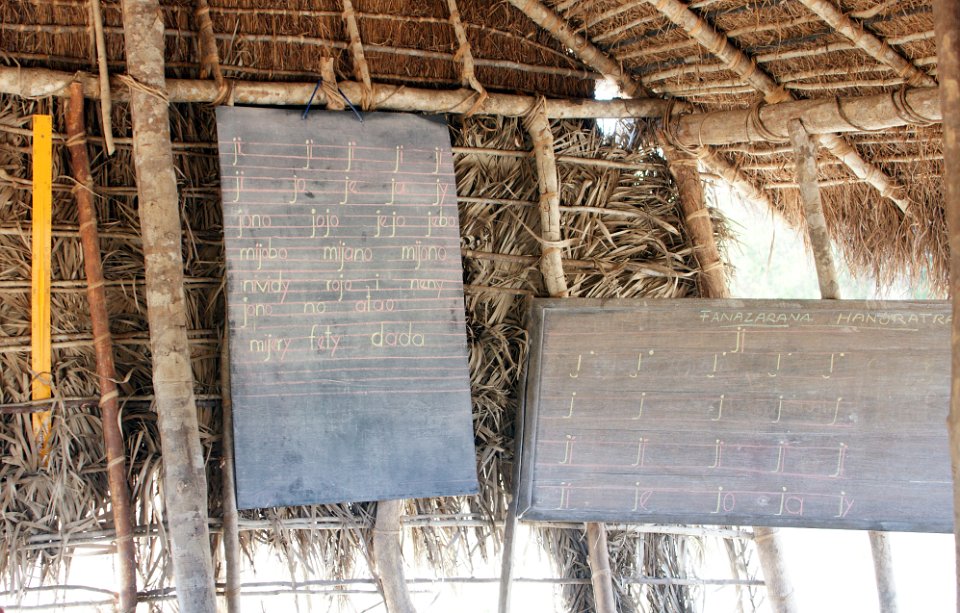 ji ji ji ji ji
ji jo je ja jy
jono jojo jejo jebo
mijobo mijano mijono
nividy rojo i neny
jono no atao
mijery fety dada
FANAZARANA HANORATRA
ji
j j j j j
j j j j
ji ji ji ji ji
ji je jo ja jy